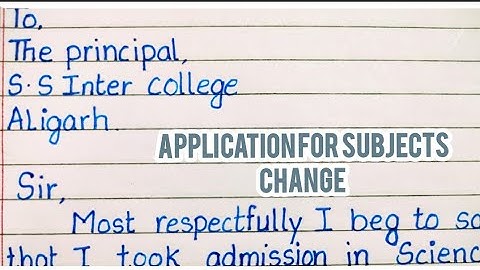 To,
The principal,
S.S Inter college
Aligarh.
APPLICATION FOR SUBJECTS
CHANGE
Sir,
Most respectfully I beg to sa
that I took admission in Scienc